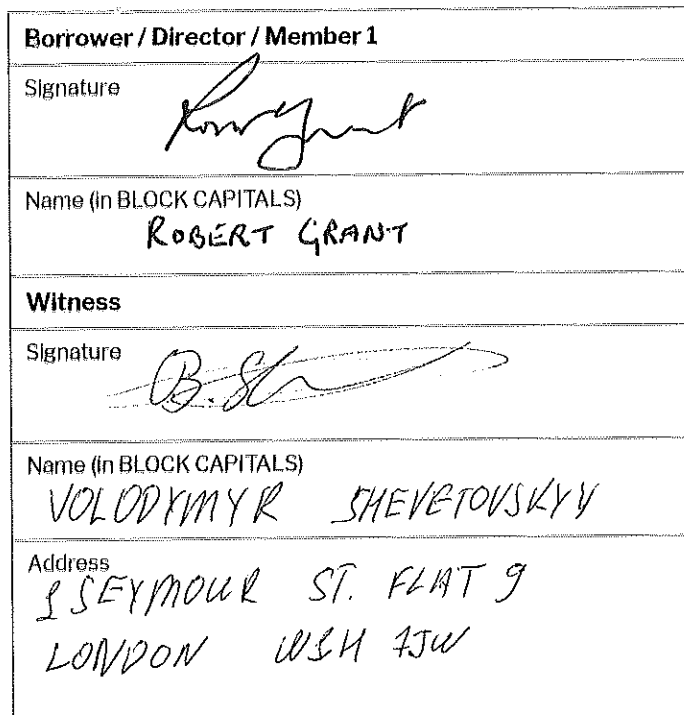 Borrower / Director / Member 1
Signature
Name (in BLOCK CAPITALS)
ROBERT GRANT
Witness
Signature
B. Sh
Name (in BLOCK CAPITALS)
VOLODYMYR SHEVETOVSKYY
Address
1 SEYMOUR ST. FLAT 9
LONDON W1H 7JW